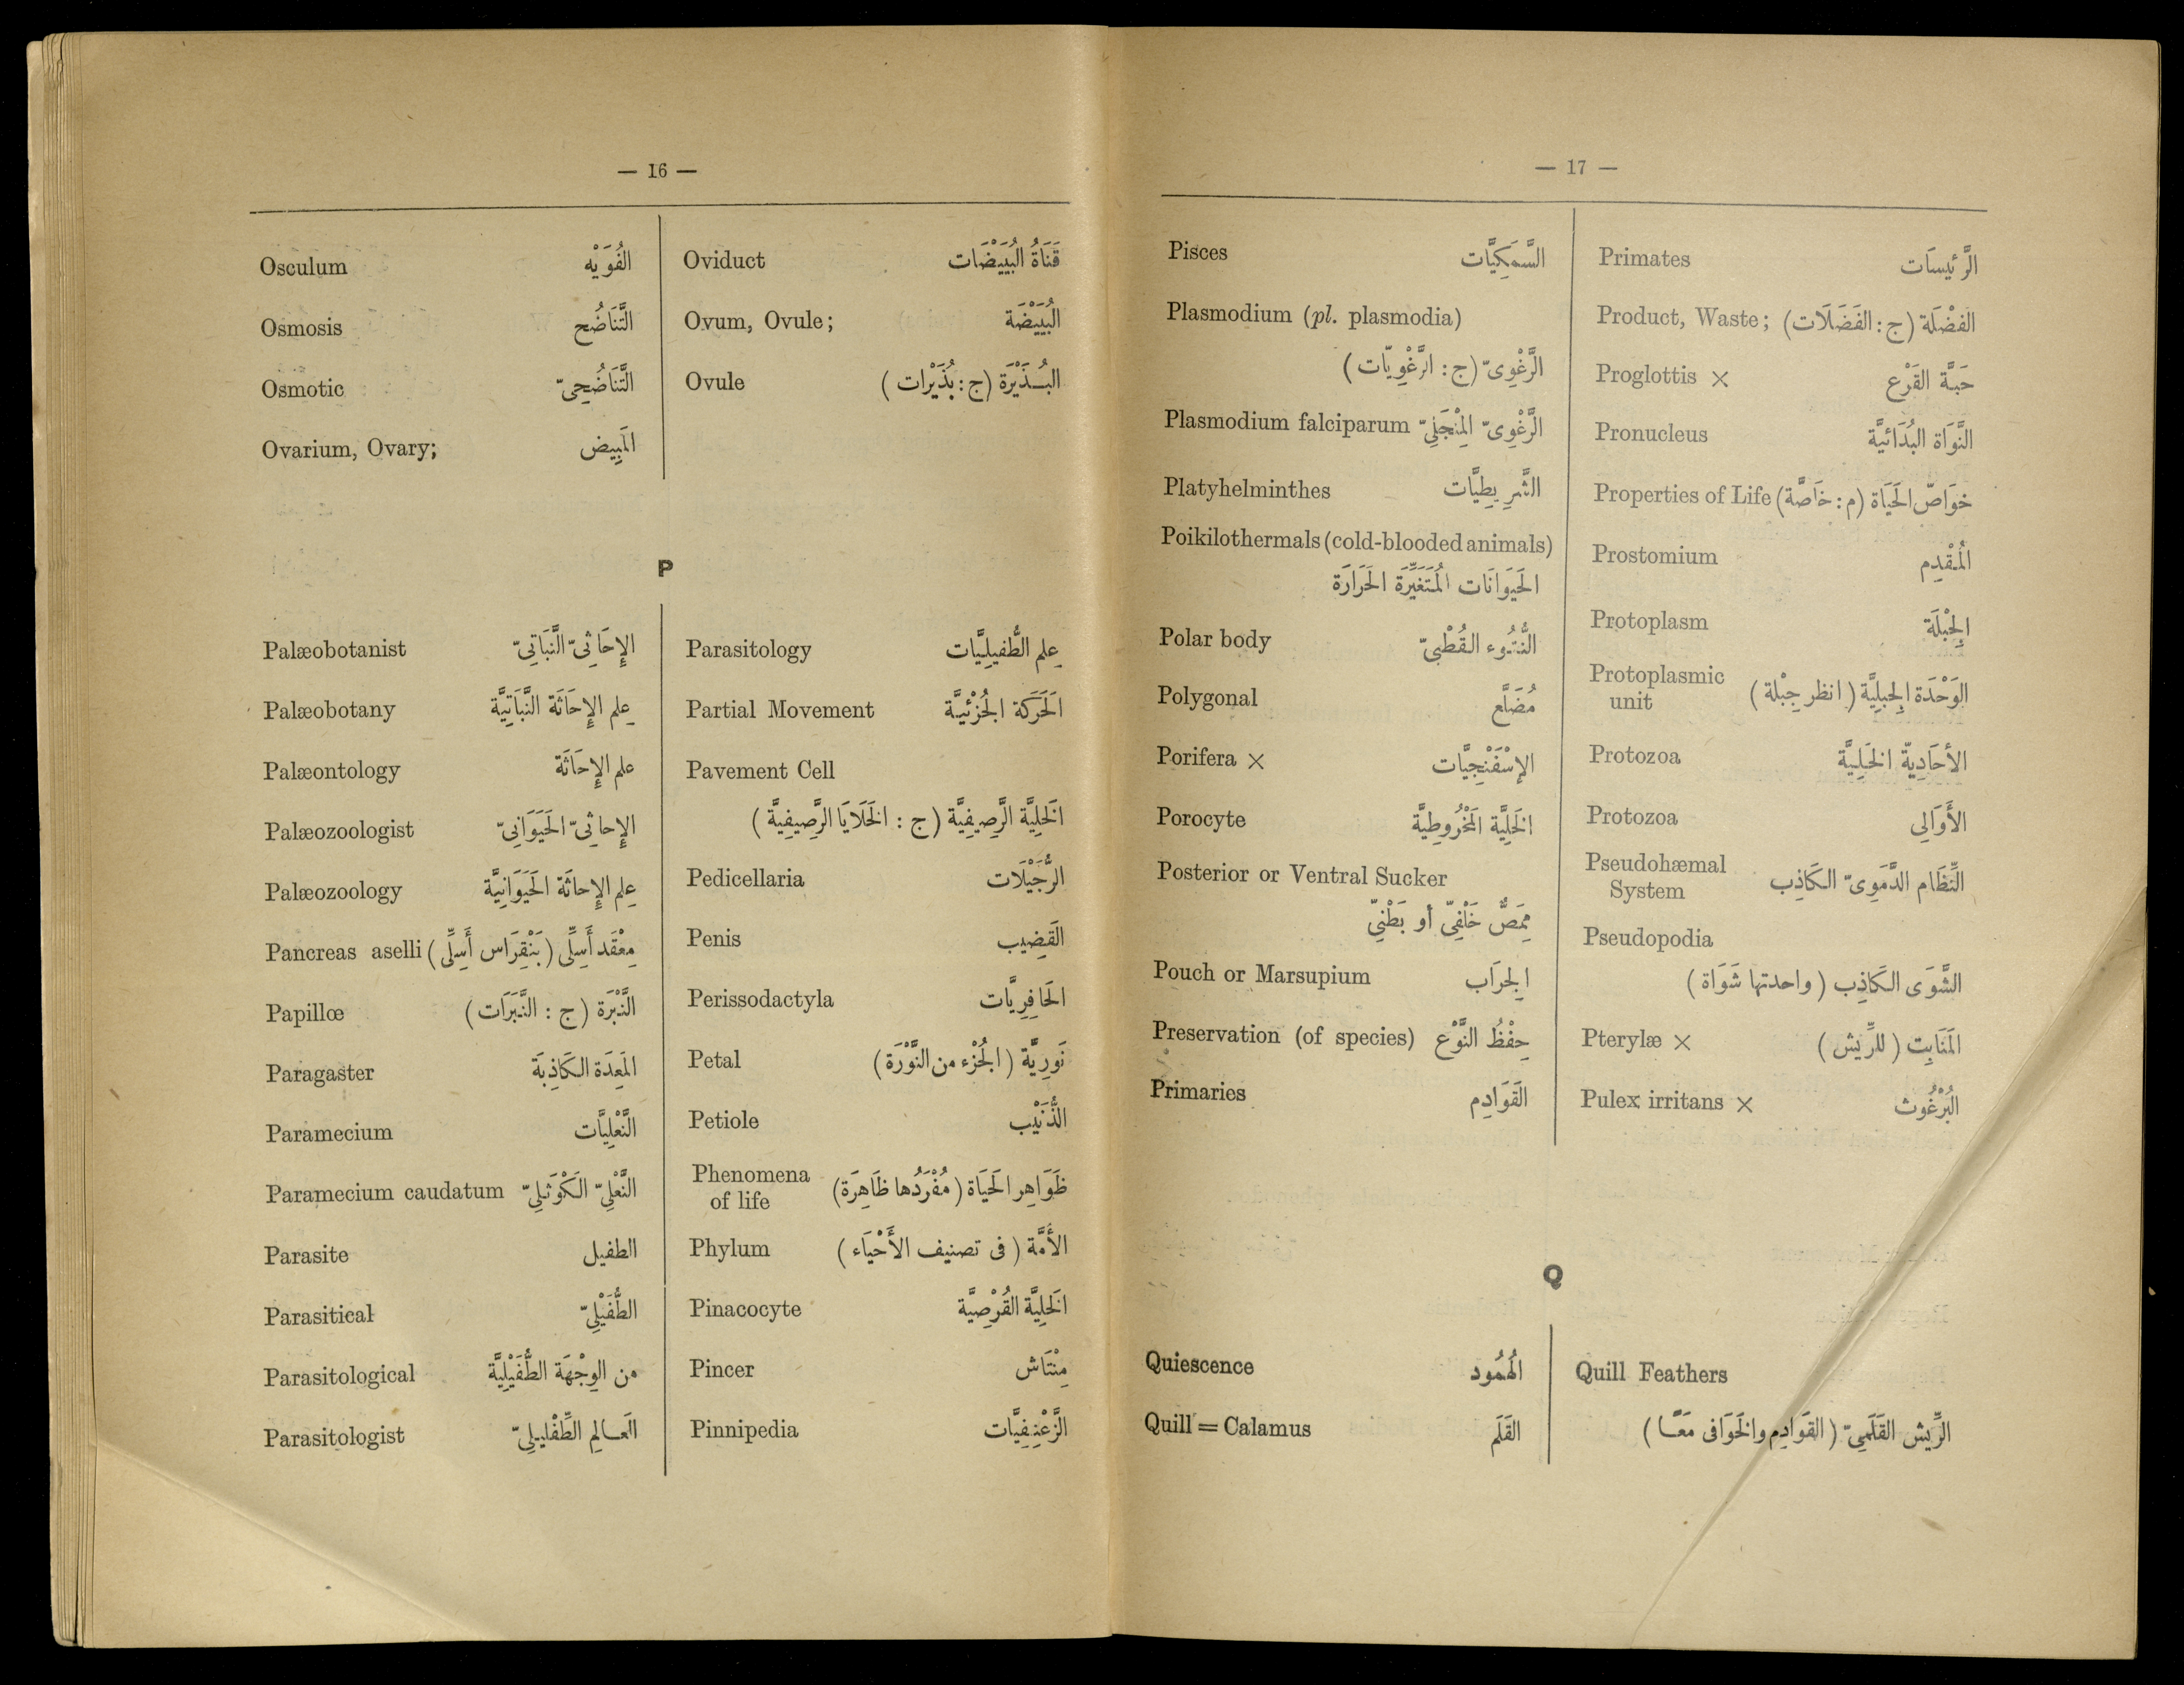 — 16 —
Osculum الفُوَيْه
Osmosis التَّنَاضُح
Osmotic التَّنَاضُحِىّ
Ovarium, Ovary; المَبِيض
Oviduct قَنَاةُ البُيَيْضَات
Ovum, Ovule; البُيَيْضَة
Ovule البُذَيْرَة (ج: بُذَيْرات)
P
Palæobotanist الإِحَاثِىّ النَّبَاتِىّ
Palæobotany عِلم الإِحَاثَة النَّبَاتِيَّة
Palæontology علم الإِحَاثَة
Palæozoologist الإِحاثِىّ الحَيَوَانِىّ
Palæozoology عِلم الإِحاثَة الحَيَوَانِيَّة
Pancreas aselli مِعْقَد أَسِلِّى (بَنْقِرَاس أَسِلِّى)
Papillœ النَّبْرَة (ج : النَّبَرَات)
Paragaster المَعِدَة الكَاذِبَة
Paramecium النَّعْلِيَّات
Paramecium caudatum النَّعْلِىّ الكَوْثَلِىّ
Parasite الطفيل
Parasitical الطُّفَيْلِىّ
Parasitological من الوِجْهَة الطُّفَيْلِيَّة
Parasitologist العَالِم الطِّفْلِيلِىّ
Parasitology عِلم الطُّفيلِيَّات
Partial Movement الحَرَكَة الجُزْئيَّة
Pavement Cell
الخَلِيَّة الرَّصِيفِيَّة (ج : الخَلَايَا الرَّصِيفِيَّة)
Pedicellaria الرُّجَيْلَات
Penis القَضِيب
Perissodactyla الحَافِرِيَّات
Petal نَورِيَّة (الجُزْء من النَّوْرَة)
Petiole الذُّنَيْب
Phenomena ظَوَاهِر الحَيَاة (مُفْرَدُها ظَاهِرَة)
of life
Phylum الأُمَّة (فى تصنيف الأَحْيَاء)
Pinacocyte الخَلِيَّة القُرْصِيَّة
Pincer مِنْتَاش
Pinnipedia الزَّعْنِفِيَّات
— 17 —
Pisces السَّمَكِيَّات
Plasmodium (pl. plasmodia)
الرَّغْوِىّ (ج : الرَّغْوِيّات)
Plasmodium falciparum الرَّغْوِىّ المِنْجَلِىّ
Platyhelminthes الشَّرِيطِيَّات
Poikilothermals (cold-blooded animals)
الحَيَوَانَات المُتَغَيِّرَة الحَرَارَة
Polar body النُّتُوء القُطْبِىّ
Polygonal مُضَلَّع
Porifera × الإِسْفَنْجِيَّات
Porocyte الخَلِيَّة المَخْرُوطِيَّة
Posterior or Ventral Sucker
مِمَصٌّ خَلْفِىّ أو بَطْنِىّ
Pouch or Marsupium الجِرَاب
Preservation (of species) حِفْظُ النَّوْع
Primaries القَوَادِم
Primates الرَّئيسَات
Product, Waste; الفَضْلَة (ج : الفَضَلَات)
Proglottis × حَبَّة القَرْع
Pronucleus النَّوَاة البُدَائيَّة
Properties of Life خوَاصّ الحَيَاة (م : خَاصَّة)
Prostomium المُقْدِم
Protoplasm الجِبْلَة
Protoplasmic الوَحْدَة الجِبلِيَّة (انظر جِبْلة)
unit
Protozoa الأحَادِيّة الخَلِيَّة
Protozoa الأَوَالِي
Pseudohæmal النِّظَام الدَّمَوِىّ الكَاذِب
System
Pseudopodia
الشَّوَى الكَاذِب (واحدتها شَوَاة)
Pterylæ × المَنَابِت (للرِّيش)
Pulex irritans × البُرْغُوث
Q
Quiescence الهُمُود
Quill = Calamus القَلَم
Quill Feathers
الرِّيش القَلَمِىّ (القَوَادِم والخَوَافى مَعًا)